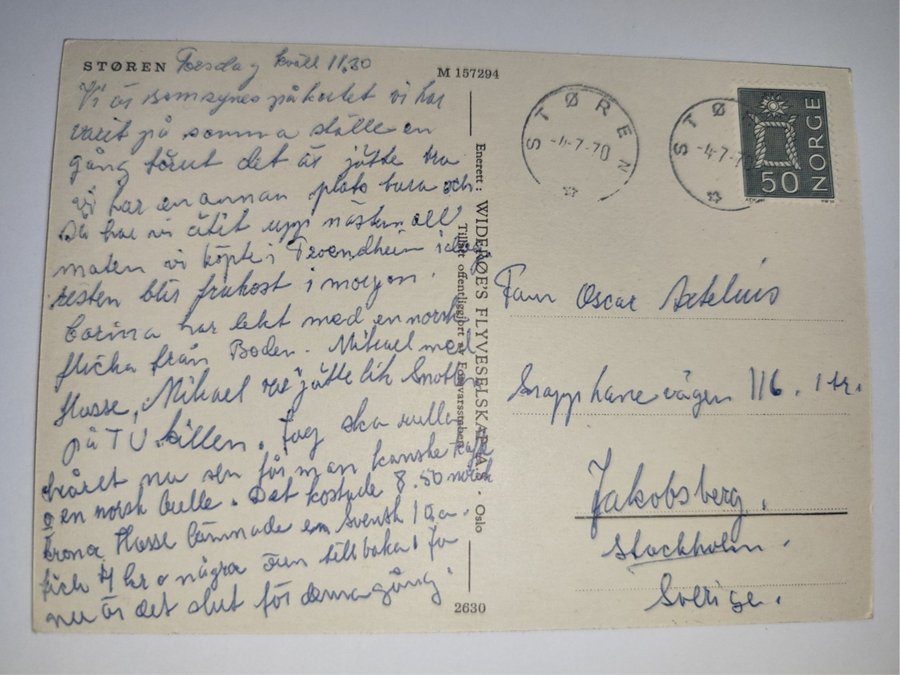 STØREN Torsdag kväll 11,30
M 157294
Vi är på kortet vi har
varit på samma ställe en
gång förut det är jätte bra
vi har en annan plats bara och
Då har vi ätit upp nästan all
maten vi köpte i Troendheim idag
resten blir frukost i morgon.
Carina har lekt med en norsk
flicka från Boden. Mikael med
Hasse, Mikael var jätte lik
på TV killen. Jag ska rulla
håret nu sen får man kanske kaffe
o en norsk bulle. Det kostade 8.50 norsk
Hasse lämnade en Svensk 10.a.
fick 4 kr o några ören tillbaka. Ja
nu är det slut för denna gång.
Enerett: WIDERØE'S FLYVESELSKAP A/S - Oslo
Tillatt offentliggjort av Forsvarsstaben
2630
STØREN
-4-7-70
STØ
-4-7-7
NORGE
50
Fam Oscar Axelius
Snapphanevägen 116. 1 tr.
Jakobsberg.
Stockholm.
Sverige.